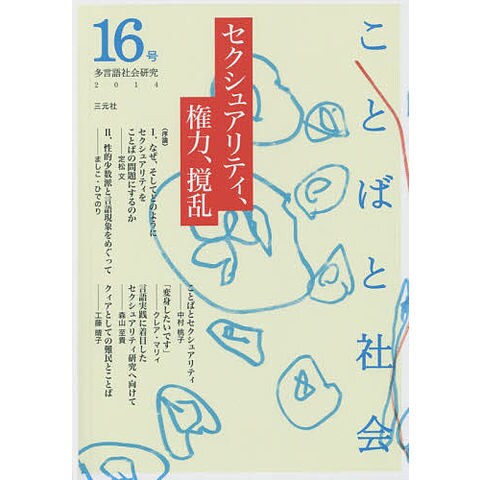 ことばと社会
16号
多言語社会研究
2014
三元社
セクシュアリティ、
権力、攪乱
〈序論〉
Ⅰ.なぜ、そしてどのように
セクシュアリティを
ことばの問題にするのか
──定松 文
Ⅱ.性的少数派と言語現象をめぐって
──ましこ・ひでのり
ことばとセクシュアリティ
──中村 桃子
「変身したいです」
──クレア・マリィ
言語実践に着目した
セクシュアリティ研究へ向けて
──森山 至貴
クィアとしての難民とことば
──工藤 晴子